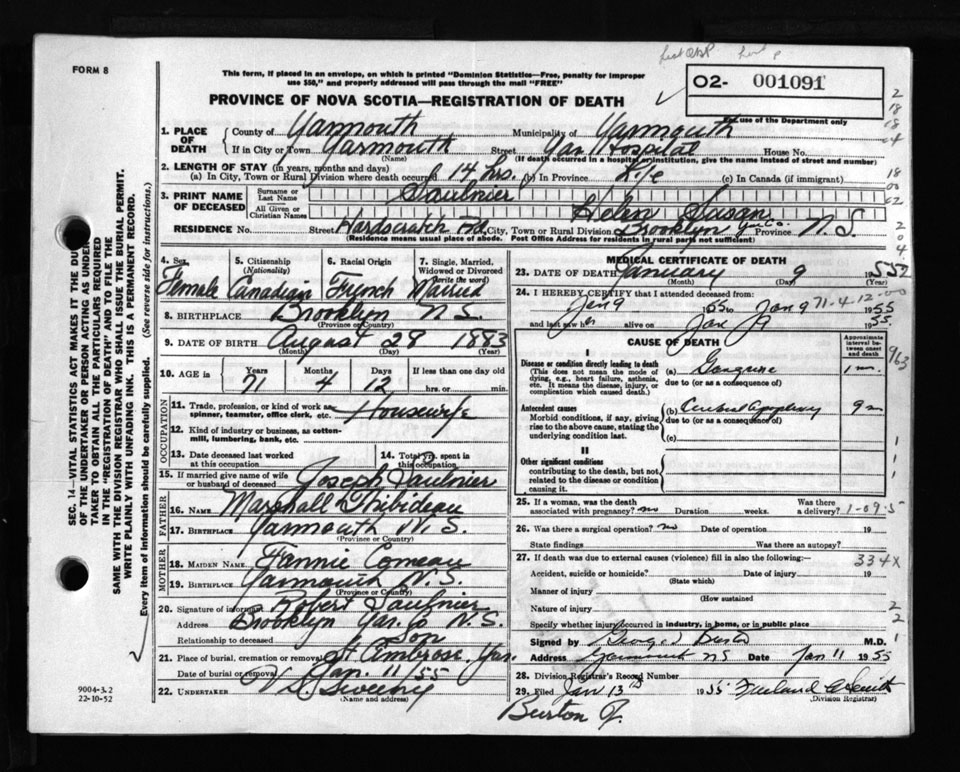 FORM 8
This form, if placed in an envelope, on which is printed "Dominion Statistics—Free, penalty for improper
use $50," and properly addressed will pass through the mail "FREE"
02- 001091
For use of the Department only
PROVINCE OF NOVA SCOTIA—REGISTRATION OF DEATH
1. PLACE OF DEATH
County of Yarmouth Municipality of Yarmouth
If in City or Town Yarmouth Street Yar Hospital House No.
(Name) (If death occurred in a hospital or institution, give the name instead of street and number)
2. LENGTH OF STAY (in years, months and days)
(a) In City, Town or Rural Division where death occurred 14 hrs. (b) In Province Life (c) In Canada (if immigrant)
3. PRINT NAME OF DECEASED
Surname or Last Name Saulnier
All Given or Christian Names Helen Susan
RESIDENCE No. Street Hardscratch Rd. City, Town or Rural Division Brooklyn Yar. Co. Province N.S.
(Residence means usual place of abode. Post Office Address for residents in rural parts not sufficient)
4. Sex Female
5. Citizenship (Nationality) Canadian
6. Racial Origin French
7. Single, Married, Widowed or Divorced (write the word) Married
8. BIRTHPLACE Brooklyn N.S.
(Province or Country)
9. DATE OF BIRTH August 28 1883
(Month) (Day) (Year)
10. AGE in Years 71 Months 4 Days 12 If less than one day old
hrs. or min.
OCCUPATION
11. Trade, profession, or kind of work as spinner, teamster, office clerk, etc. Housewife
12. Kind of industry or business, as cotton-mill, lumbering, bank, etc.
13. Date deceased last worked at this occupation
14. Total yrs. spent in this occupation
15. If married give name of wife or husband of deceased Joseph Saulnier
FATHER
16. NAME Marshall Thibideau
17. BIRTHPLACE Yarmouth N.S.
(Province or Country)
MOTHER
18. MAIDEN NAME Fannie Comeau
19. BIRTHPLACE Yarmouth N.S.
(Province or Country)
20. Signature of informant Robert Saulnier
Address Brooklyn Yar. Co N.S.
Relationship to deceased Son
21. Place of burial, cremation or removal St Ambrose, Yar.
Date of burial or removal Jan. 11 55
22. UNDERTAKER V.S. Sweeny
(Name and address)
MEDICAL CERTIFICATE OF DEATH
23. DATE OF DEATH January 9 1955
(Month) (Day) (Year)
24. I HEREBY CERTIFY that I attended deceased from:
Jan 9 1955 to Jan 9 1955
71-4-12
and last saw her alive on Jan 9 1955.
CAUSE OF DEATH
Approximate interval between onset and death
I
Disease or condition directly leading to death
(This does not mean the mode of dying, e.g., heart failure, asthenia, etc. It means the disease, injury, or complication which caused death.)
(a) Gangrene 1 m.
due to (or as a consequence of)
Antecedent causes
Morbid conditions, if any, giving rise to the above cause, stating the underlying condition last.
(b) Cerebral Apoplexy 9 m
due to (or as a consequence of)
(c)
II
Other significant conditions
contributing to the death, but not related to the disease or condition causing it.
25. If a woman, was the death associated with pregnancy? no Duration weeks. Was there a delivery?
1-09-5
26. Was there a surgical operation? no Date of operation 19
State findings Was there an autopsy?
27. If death was due to external causes (violence) fill in also the following:-
334X
Accident, suicide or homicide? Date of injury 19
(State which)
Manner of injury
(How sustained
Nature of injury
Specify whether injury occurred in industry, in home, or in public place
Signed by M.D.
Address Yarmouth NS Date Jan 11 1955
28. Division Registrar's Record Number
29. Filed Jan 13th 1955
(Division Registrar)
Burton J.
SEC. 14—VITAL STATISTICS ACT MAKES IT THE DUTY
OF THE UNDERTAKER OR PERSON ACTING AS UNDER-
TAKER TO OBTAIN ALL THE PARTICULARS REQUIRED
IN THE "REGISTRATION OF DEATH" AND TO FILE THE
SAME WITH THE DIVISION REGISTRAR WHO SHALL ISSUE THE BURIAL PERMIT.
WRITE PLAINLY WITH UNFADING INK. THIS IS A PERMANENT RECORD.
Every item of information should be carefully supplied. (See reverse side for instructions.)
9004-3.2
22-10-52